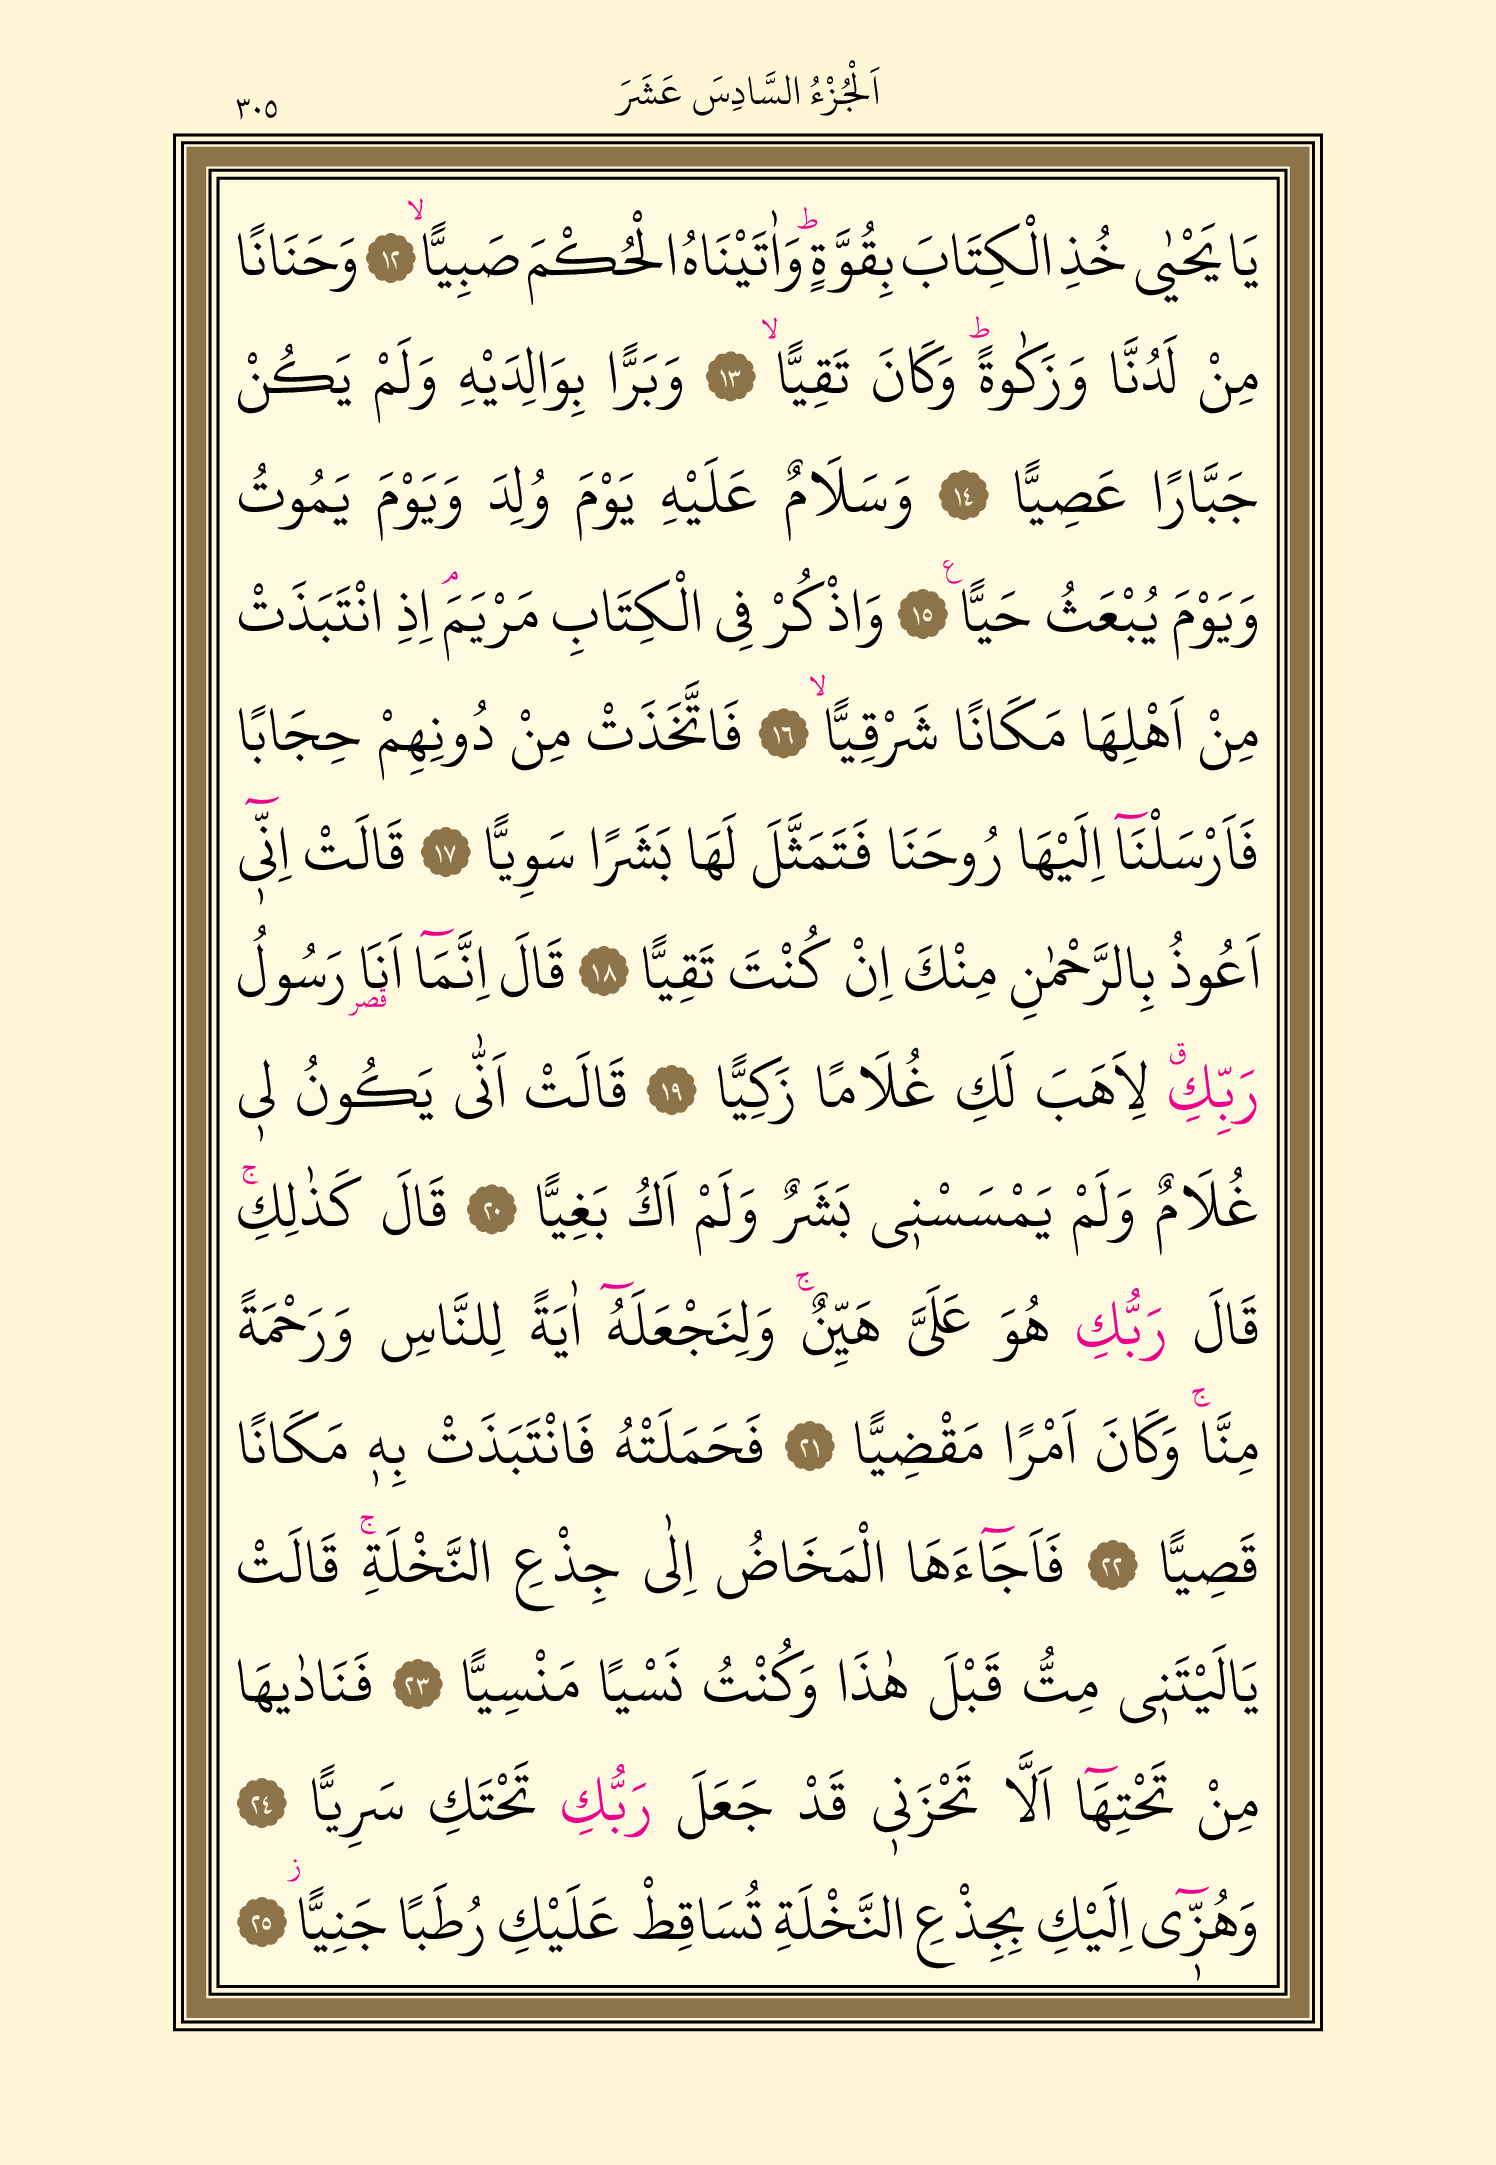 اَلْجُزْءُ السَّادِسَ عَشَرَ
٣٠٥
يَا يَحْيٰى خُذِ الْكِتَابَ بِقُوَّةٍۜ وَاٰتَيْنَاهُ الْحُكْمَ صَبِيًّاۙ ١٢ وَحَنَانًا
مِنْ لَدُنَّا وَزَكٰوةًۜ وَكَانَ تَقِيًّاۙ ١٣ وَبَرًّا بِوَالِدَيْهِ وَلَمْ يَكُنْ
جَبَّارًا عَصِيًّا ١٤ وَسَلَامٌ عَلَيْهِ يَوْمَ وُلِدَ وَيَوْمَ يَمُوتُ
وَيَوْمَ يُبْعَثُ حَيًّاࣖ ١٥ وَاذْكُرْ فِي الْكِتَابِ مَرْيَمَۢ اِذِ انْتَبَذَتْ
مِنْ اَهْلِهَا مَكَانًا شَرْقِيًّاۙ ١٦ فَاتَّخَذَتْ مِنْ دُونِهِمْ حِجَابًا
فَاَرْسَلْنَٓا اِلَيْهَا رُوحَنَا فَتَمَثَّلَ لَهَا بَشَرًا سَوِيًّا ١٧ قَالَتْ اِنّ۪ٓي
اَعُوذُ بِالرَّحْمٰنِ مِنْكَ اِنْ كُنْتَ تَقِيًّا ١٨ قَالَ اِنَّمَٓا اَنَا۬ قصر رَسُولُ
رَبِّكِۗ لِاَهَبَ لَكِ غُلَامًا زَكِيًّا ١٩ قَالَتْ اَنّٰى يَكُونُ ل۪ي
غُلَامٌ وَلَمْ يَمْسَسْن۪ي بَشَرٌ وَلَمْ اَكُ بَغِيًّا ٢٠ قَالَ كَذٰلِكِۚ
قَالَ رَبُّكِ هُوَ عَلَيَّ هَيِّنٌۚ وَلِنَجْعَلَهُٓ اٰيَةً لِلنَّاسِ وَرَحْمَةً
مِنَّاۚ وَكَانَ اَمْرًا مَقْضِيًّا ٢١ فَحَمَلَتْهُ فَانْتَبَذَتْ بِه۪ مَكَانًا
قَصِيًّا ٢٢ فَاَجَٓاءَهَا الْمَخَاضُ اِلٰى جِذْعِ النَّخْلَةِۚ قَالَتْ
يَالَيْتَن۪ي مِتُّ قَبْلَ هٰذَا وَكُنْتُ نَسْيًا مَنْسِيًّا ٢٣ فَنَادٰيهَا
مِنْ تَحْتِهَٓا اَلَّا تَحْزَن۪ي قَدْ جَعَلَ رَبُّكِ تَحْتَكِ سَرِيًّا ٢٤
وَهُزّ۪ٓي اِلَيْكِ بِجِذْعِ النَّخْلَةِ تُسَاقِطْ عَلَيْكِ رُطَبًا جَنِيًّاؗ ٢٥